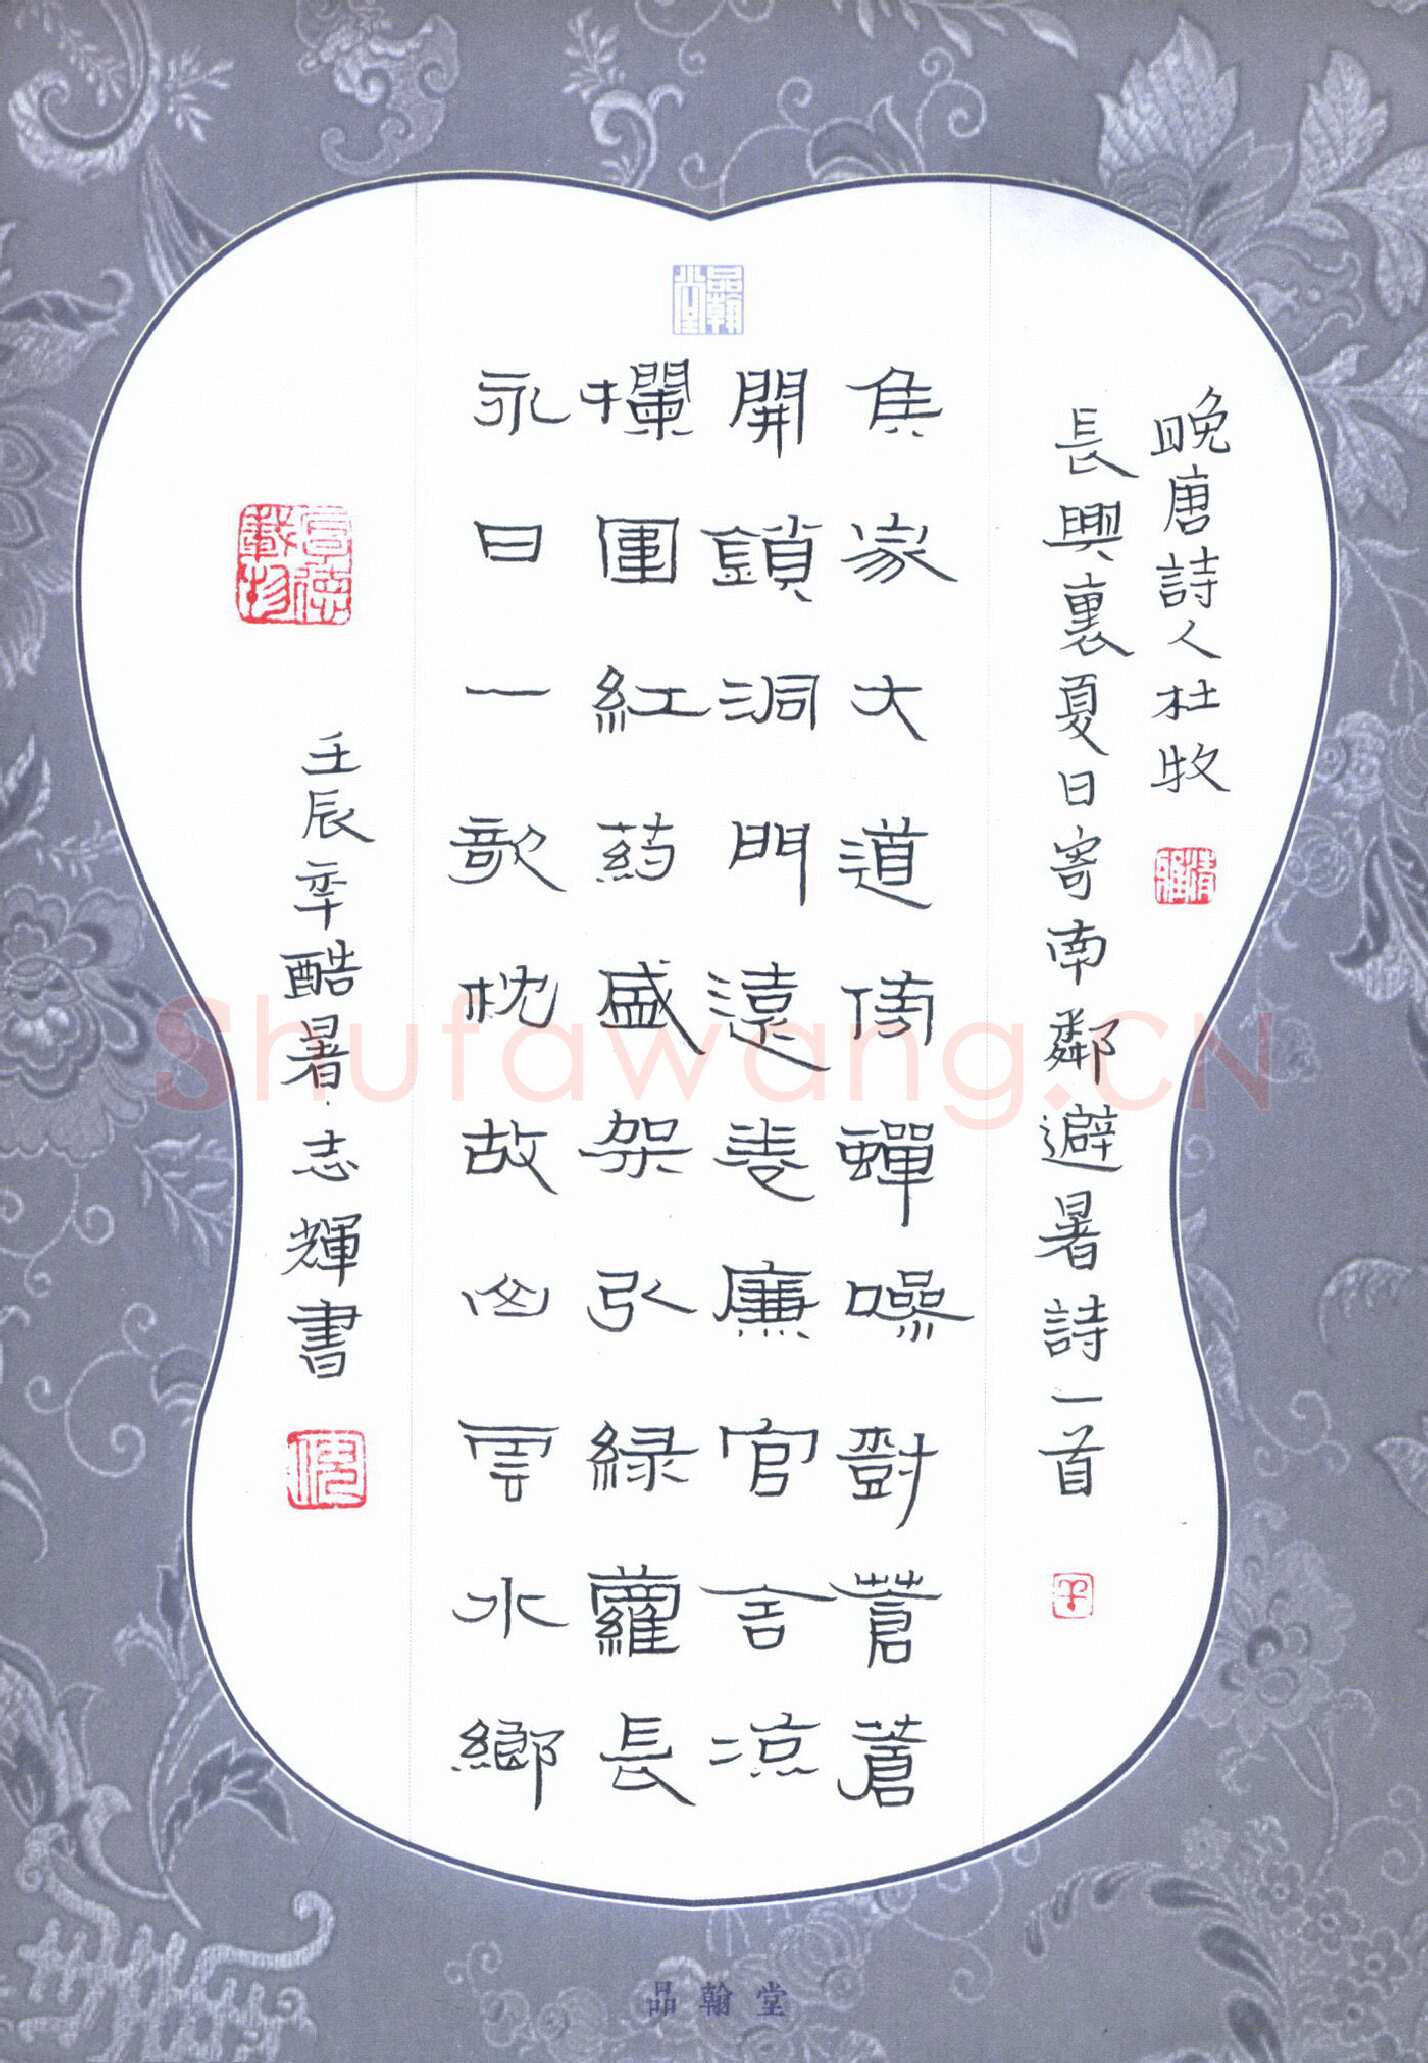 晚唐詩人杜牧
清雅
長興裏夏日寄南鄰避暑詩一首
品翰堂
矦家大道傍蟬噪對蒼蒼
開鎖洞門遠卷廉官舍凉
欄圍紅葯盛架引緑蘿長
永日一欹枕故山雲水鄉
厚德載物
壬辰年酷暑·志輝書
Shufawang.CN
品翰堂